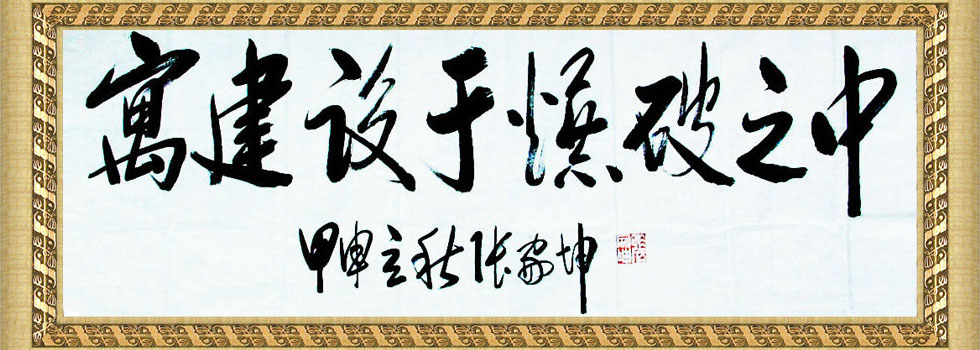 寓建设于爆破之中
甲申立秋张家坤